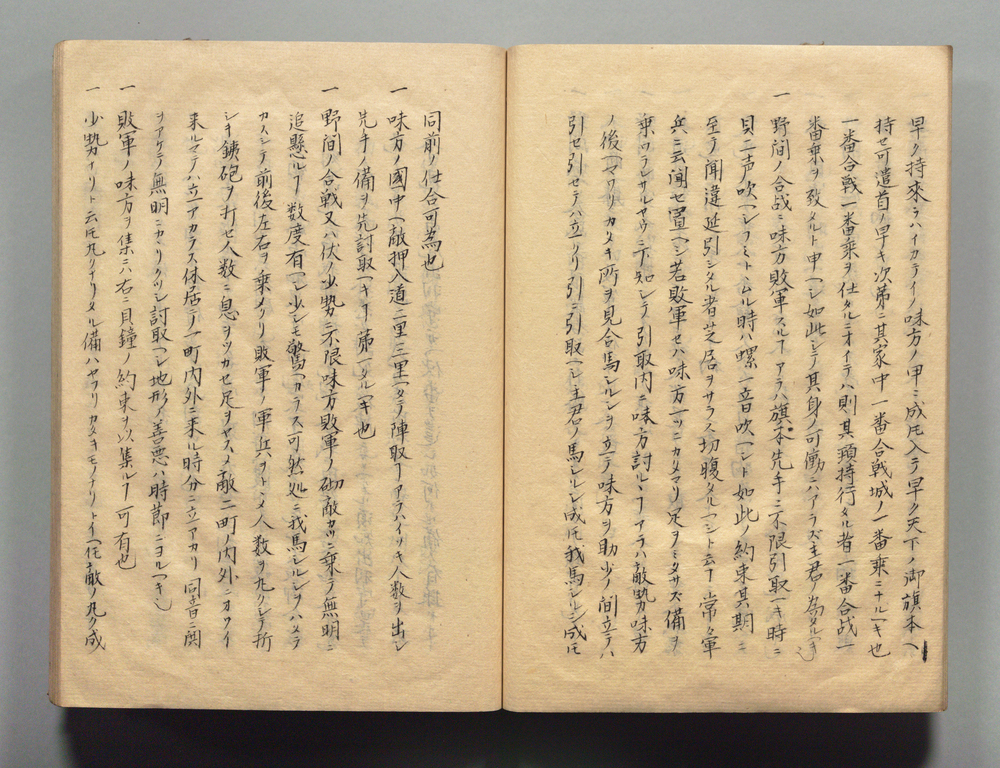 早ク持來ラハイカテイノ味方ノ甲ニ成圧入テ早ク天下ノ御旗本ヘ
持セ可遣首ノ早キ次第ニ其家中一番合戦城ノ一番乗ニナルヘキ也
一番合戦一番乗ヲ仕タルニオイテハ則其頸持行タル者一番合战一
番乗ヲ致タルト申ヘシ如此シテ其身ノ可働ニハアラズ主君ノ為タルヘキ也
一 野間ノ合战ニ味方敗軍スルヿアラハ旗本先手ニ不限引取ヘキ時ニ
貝二声吹ヘシフミトムル時ハ螺一音吹ヘシト如此ノ約束其期ニ
至テ聞違延引シタル者芝居ヲサラス切腹タルヘシト云ヿ常々軍
兵ニ云聞セ置ヘシ若敗軍セハ味方一ツニカタマリ足ヲミタサス備ヲ
乗ワラレサルヤウニ下知シテ引取内ニ味方討ルヽヿアラハ敵勢味方
ノ後ヘマワリカタキ所ヲ見合馬シルシヲ立テ味方ヲ助少ノ間立テハ
引セ引セテハ立クリ引ニ引取ヘシ主君ノ馬シルシ成圧我馬シルシ成圧
同前ノ仕合可為也
一 味方ノ國中ヘ敵押入道二里三里ヘタテ陣取ヿアラハイツキ人数ヲ出シ
先手ノ備ヲ先討取ヘキヿ第一タルヘキ也
一 野間ノ合戦又ハ伏ノ少勢ニ不限味方敗軍ノ砌敵カツニ乗テ無明ニ
追懸ルヿ数度有ヘシ少シモ驚ヘカラス可然処ニ我馬シルシヲハメラ
カシテ前後左右ヲ乗メクリ敗軍ノ軍兵ヲトメ人数ヲ丸クシテ折
シキ鉄砲ヲ打セ人数ニ息ヲツカセ足ヲヤスメ敵二町ノ内外ニオワイ
来ルマテハ立アカラス休居テ一町内外ニ来ル時分ニ立アカリ同音ニ鬨
ヲアケテ無明ニカヽリクツシ討取ヘシ地形ノ善悪ハ時節ニヨルヘキ也
一 敗軍ノ味方ヲ集ニハ右ニ貝鐘ノ約束ヲ以集ルヿ可有也
一 少勢ナリト云圧丸クナリタル備ハヤワリカタキモノナリトイヘ圧敵ノ丸ク成